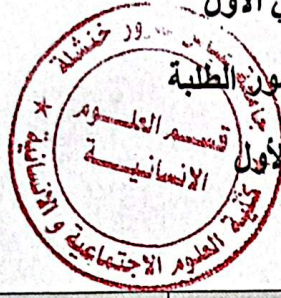 الأول
ور الطلبة
الأول
جامعة عباس لغرور خنشلة
قسم العلوم
الانسانية
كلية العلوم الاجتماعية و الانسانية